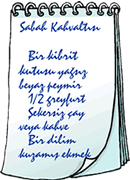 Sabah Kahvaltısı
Bir kibrit
kutusu yağsız
beyaz peynir
1/2 greyfurt
Şekersiz çay
veya kahve
Bir dilim
kızamış ekmek